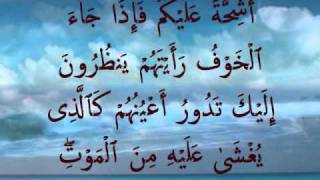 أَشِحَّةً عَلَيْكُمْ فَإِذَا جَاءَ
ٱلْخَوْفُ رَأَيْتَهُمْ يَنظُرُونَ
إِلَيْكَ تَدُورُ أَعْيُنُهُمْ كَٱلَّذِى
يُغْشَىٰ عَلَيْهِ مِنَ ٱلْمَوْتِ ۖ